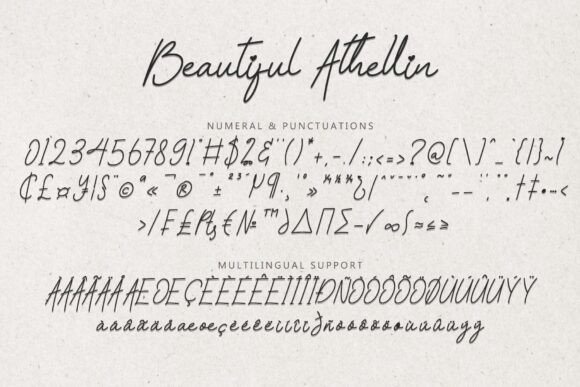 Beautiful Athellin
NUMERAL & PUNCTUATIONS
0123456789!"#$%&'()*+,-./:;<=>?@[\]^_`{|}~¡
¢£¤¥¦§¨©ª«¬®¯°±²³´µ¶·¸¹º»¼½¾¿ˆˇ˘˙˚˛˜˝–—‘’‚“”„†‡•…‹
›⁄₣₤₧€№™∂∆∏∑−√∞∫≈≤≥
MULTILINGUAL SUPPORT
ÀÁÂÃÄÅÆŒÇÈÉÊËÌÍÎÏÐÑÒÓÔÕÖØÙÚÛÜÝŸ
àáâãäåæœçèéêëìíîïðñòóôõöøùúûüýÿ